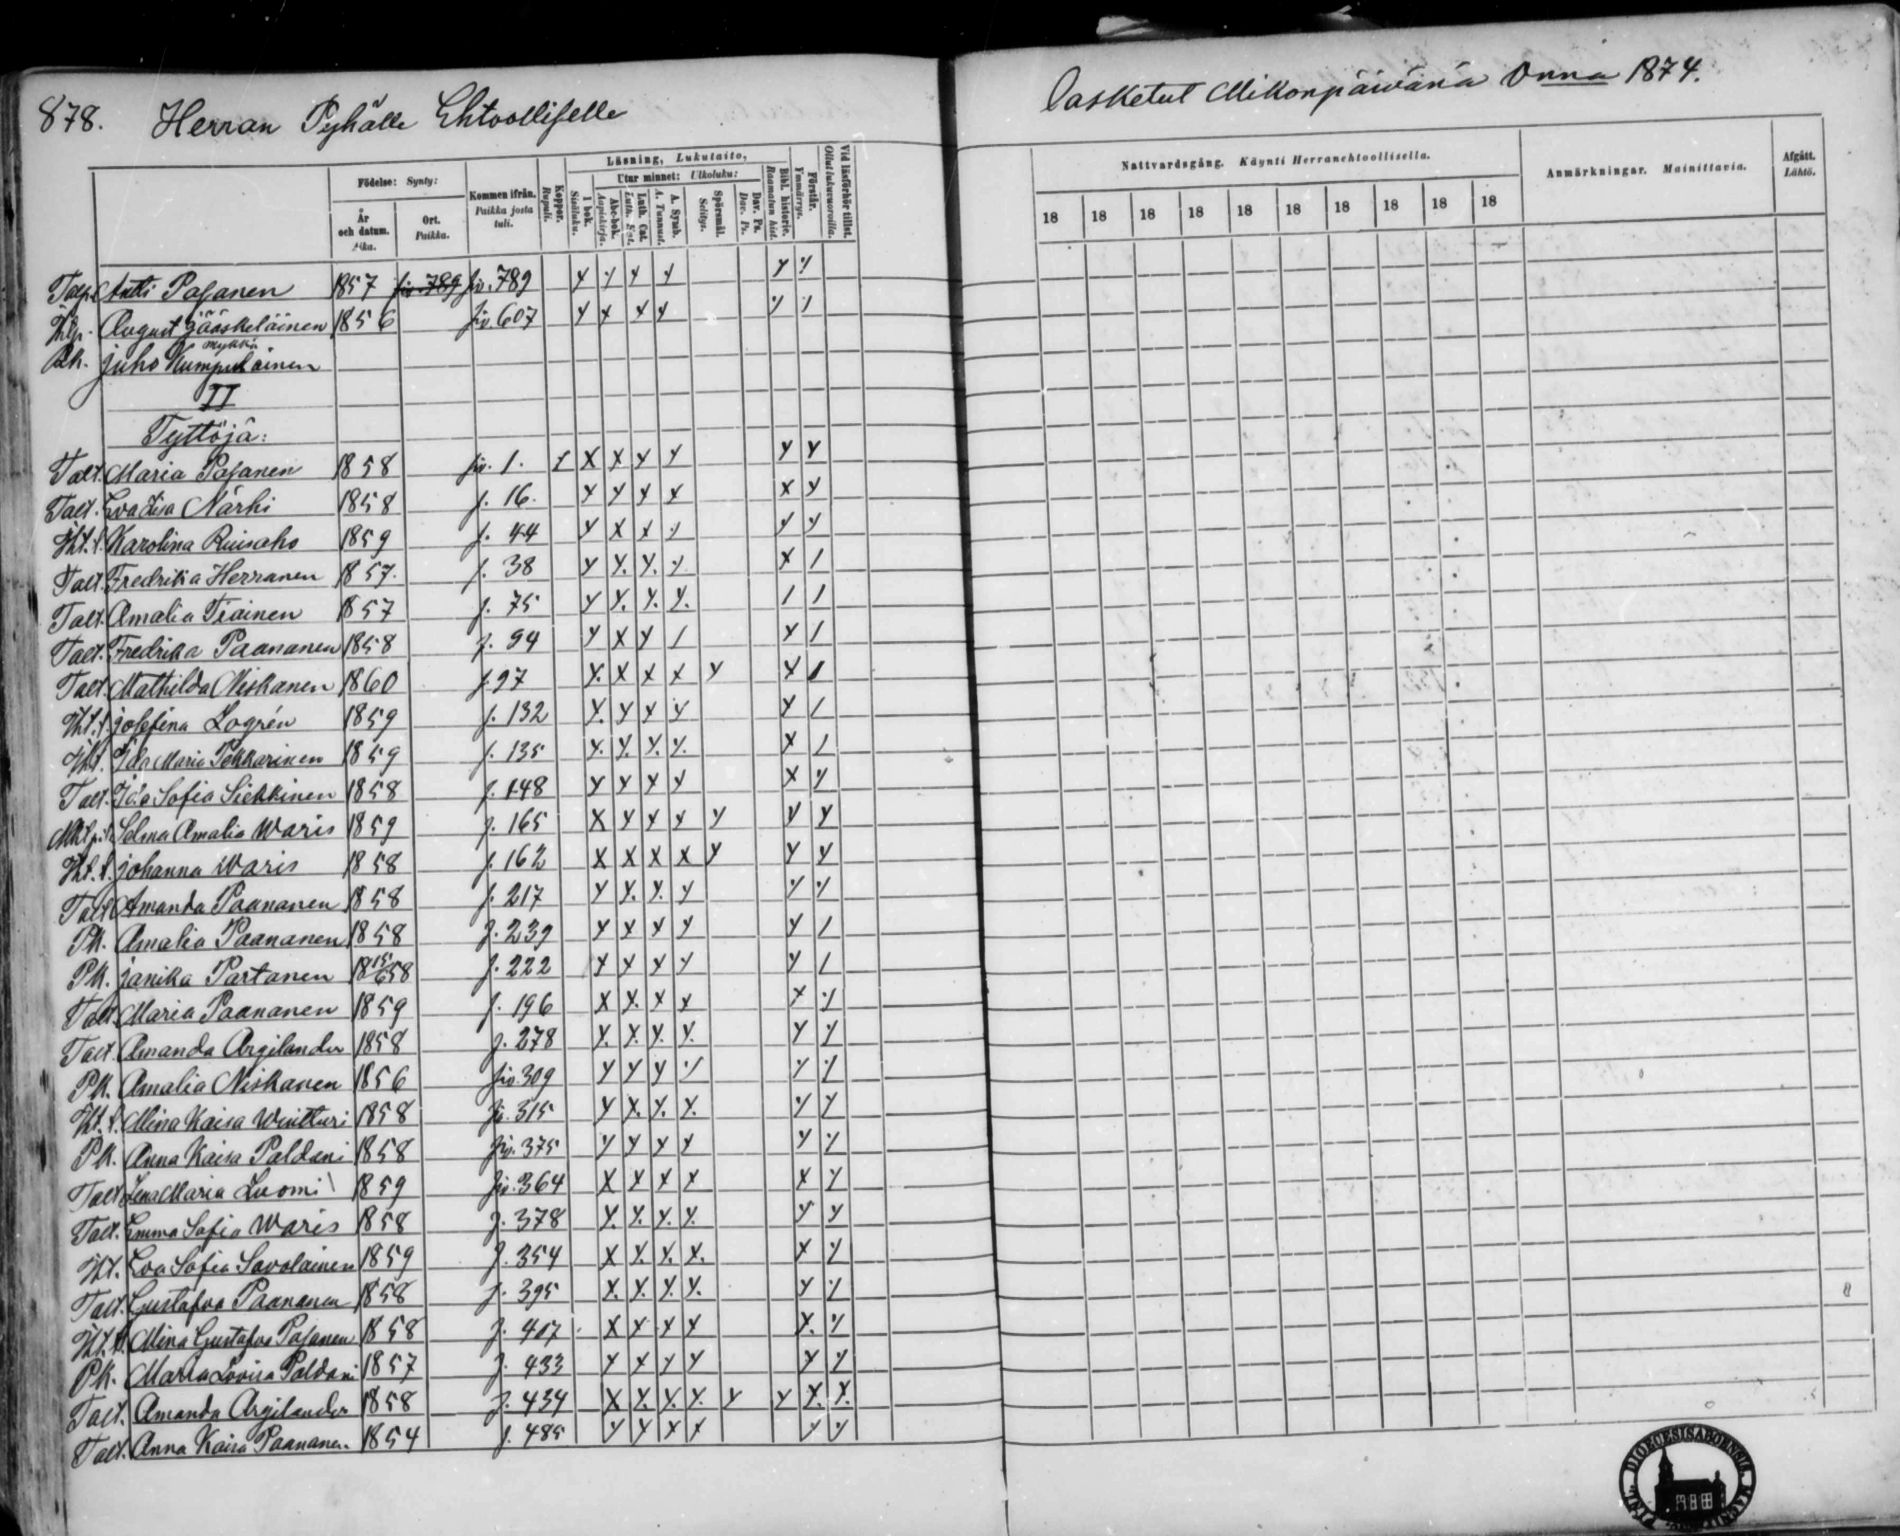 878. Herran Pyhälle Ehtoolliselle
lasketut Mikonpäivänä vnna 1874.
Födelse: Synty:
År och datum. Aika.
Ort. Paikka.
Kommen ifrån. Paikka josta tuli.
Koppor. Rupuli.
Läsning, Lukutaito,
Utur minnet: Ulkoluku:
I bok. Sisäluku.
Abc-bok. Aapiskirja.
Luth. Cat. Luth. Kat.
A. Symb. A. Tunnust.
Spörsmål. Selitys.
Dav. Ps. Dav. Ps.
Bibl. historie. Raamatun hist.
Förstår. Ymmärrys.
Vid läsförhör tillst. Ollut lukuvuoroilla.
Nattvardsgång. Käynti Herranehtoollisella.
18 18 18 18 18 18 18 18 18 18
Anmärkningar. Mainittavia.
Afgått. Lähtö.
Antti Pasanen 1857 siv. 789 siv. 789
August Jääskeläinen 1856 siv. 607
mykkä
Juho Kumpulainen
II
Tyttöjä:
Talt. Maria Pasanen 1858 siv. 1.
Talt. Eva Lisa Närhi 1858 s. 16.
Karolina Ruisaho 1859 s. 44
Talt. Fredrika Herranen 1857. s. 38
Talt. Amalia Tiainen 1857 s. 75
Talt. Fredrika Paananen 1858 s. 94
Talt. Mathilda Niskanen 1860 s. 97
Josefina Logrén 1859 s. 132
Ida Maria Pekkarinen 1859 s. 135
Talt. Ida Sofia Siekkinen 1858 s. 148
Selma Amalia Waris 1859 s. 165
Johanna Waris 1858 s. 162
Talt. Amanda Paananen 1858 s. 217
Pk. Amalia Paananen 1858 s. 239
Pk. Janika Partanen 18 15/6 58 s. 222
Talt. Maria Paananen 1859 s. 196
Talt. Amanda Argilander 1858 s. 278
Pk. Amalia Niskanen 1856 siv. 309
Mina Kaisa Wiitturi 1858 siv. 315
Pk. Anna Kaisa Paldani 1858 siv. 375
Talt. Lena Maria Luomi 1859 siv. 364
Talt. Emma Sofia Waris 1858 s. 378
Eva Sofia Savolainen 1859 s. 354
Talt. Gustafva Paananen 1858 s. 395
Mina Gustafva Pasanen 1858 s. 407
Pk. Maria Lovisa Paldani 1857 s. 433
Talt. Amanda Argilander 1858 s. 434
Talt. Anna Kaisa Paananen 1854 s. 485